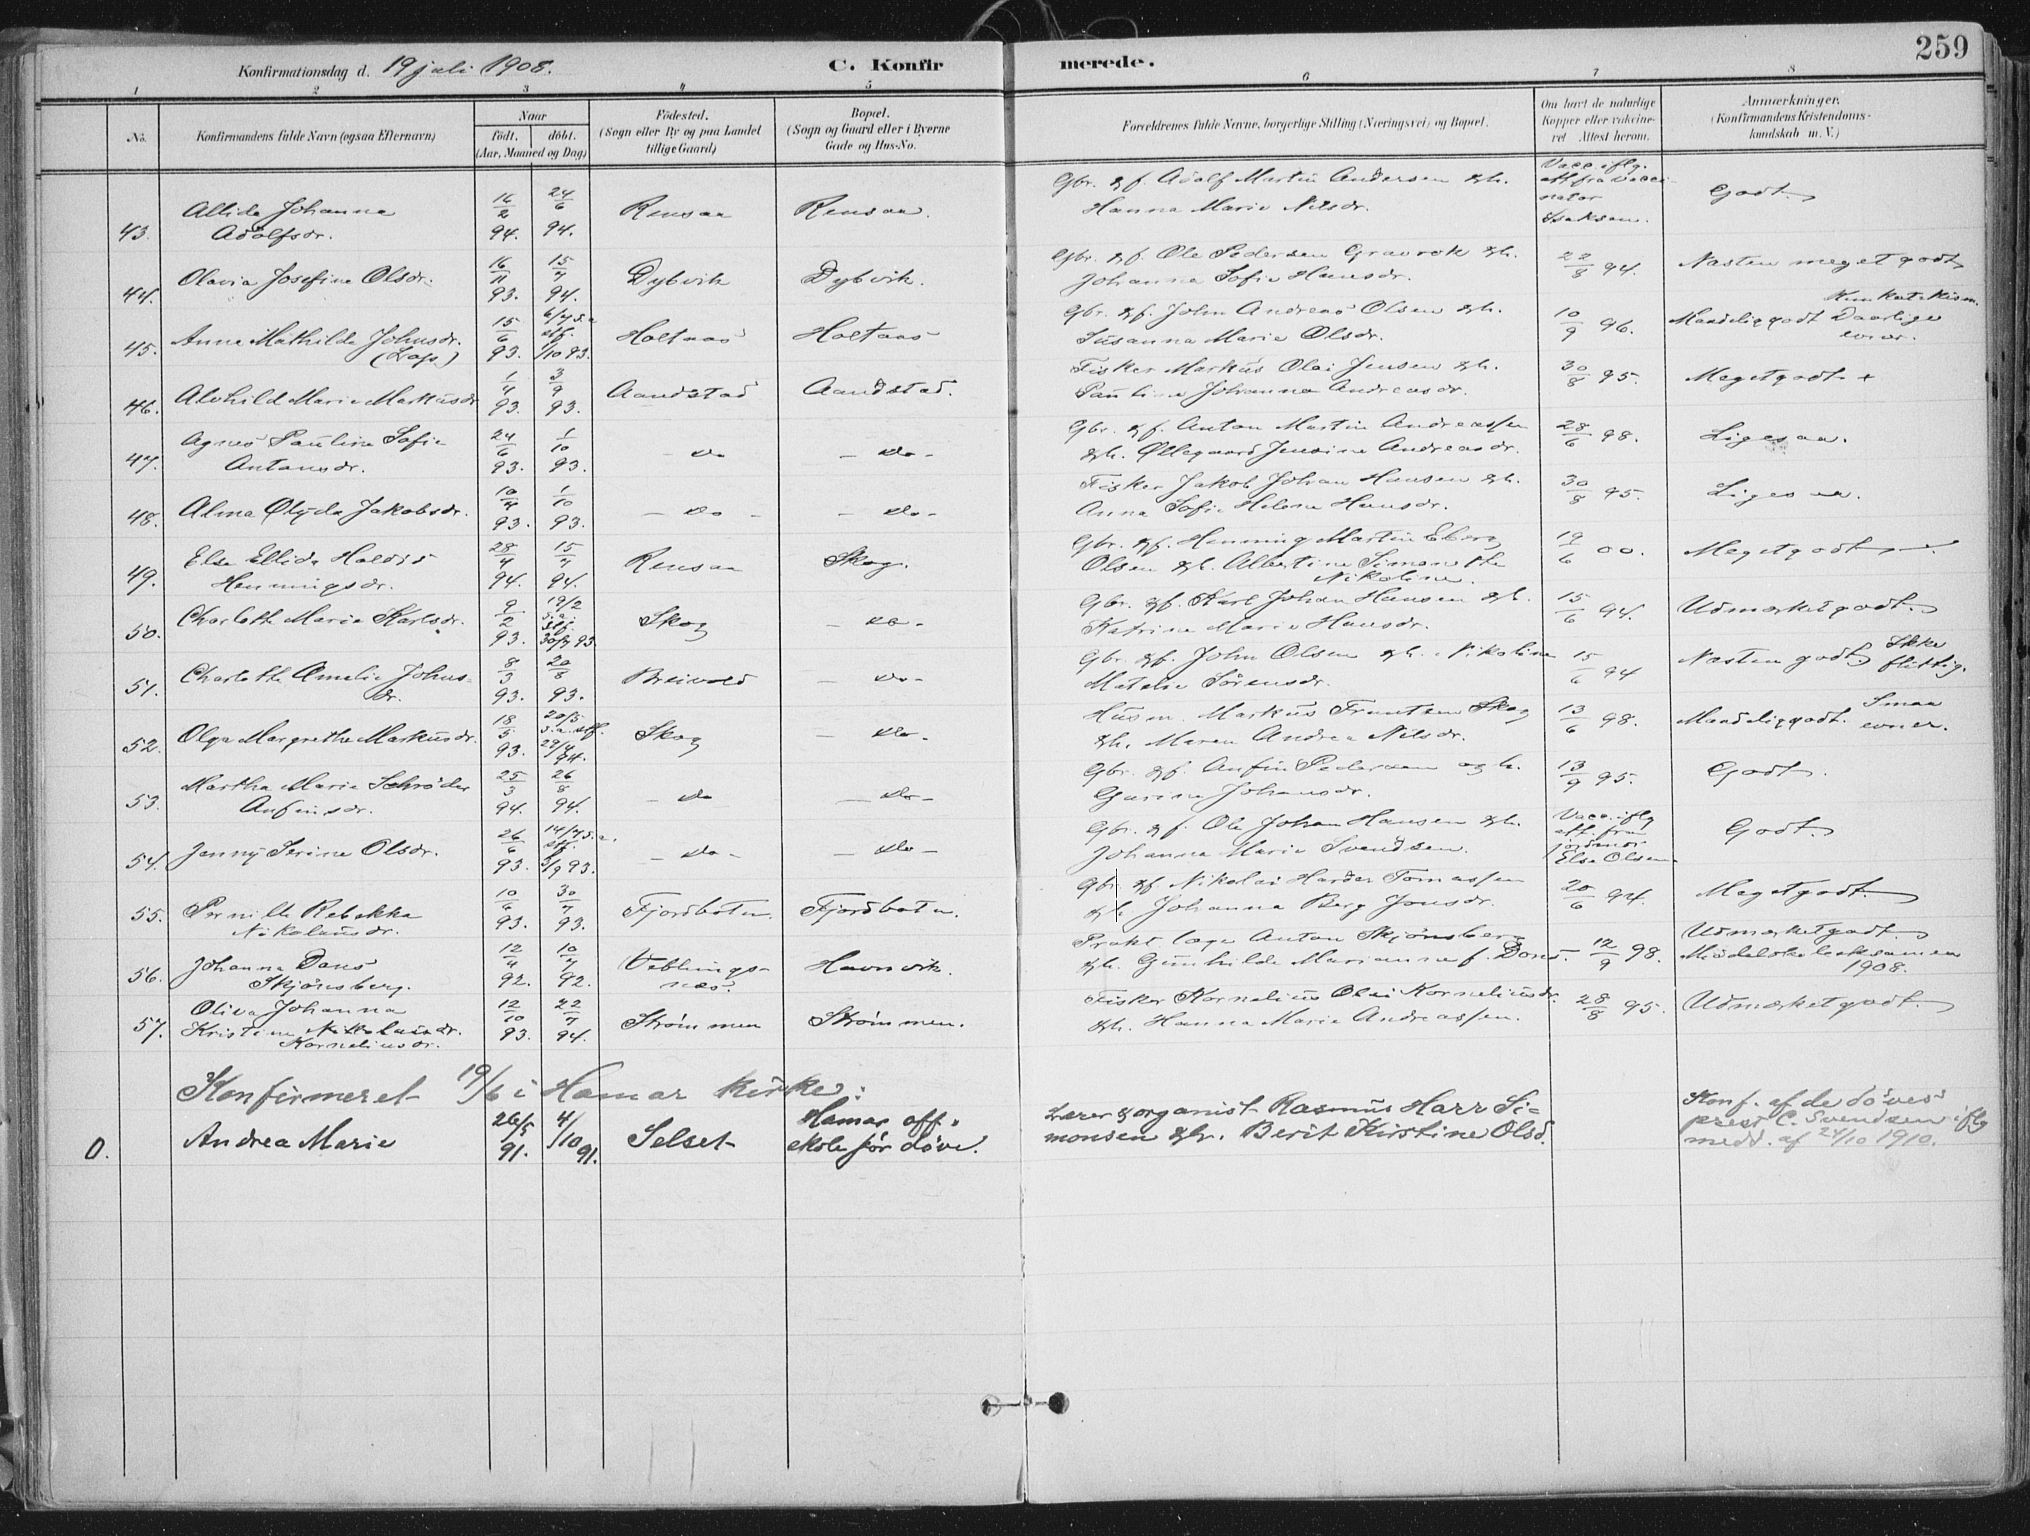 259
Konfirmationsdag d. 19 juli 1908. C. Konfirmerede.
1 2 3 4 5 6 7 8
No. Konfirmandens fulde Navn (ogsaa Efternavn) Naar født. døbt. (Aar, Maaned og Dag) Fødested. (Sogn eller By og paa Landet tillige Gaard) Bopæl. (Sogn og Gaard eller i Byerne Gade og Hus-No. Forældrenes fulde Navne, borgerlige Stilling (Næringsvei) og Bopæl. Om havt de naturlige Kopper eller vakcineret Attest herom. Anmærkninger. (Konfirmandens Kristendomskundskab m. V.)
43. Allida Johanna Adolfsdr. 16/2 94. 24/6 94. Rensaa Rensaa. Gbr. gf. Adolf Martin Andersen gh. Hanna Marie Nilsdr. Vacc. iflg. att. fra vaccinator Isaksen. Godt.
44. Olavia Josefine Olsdr. 16/11 93. 15/7 94. Dybvik Dybvik. Gbr. gf. Ole Pedersen Gravrok gh. Johanna Sofie Hansdr. 22/8 94. Næsten meget godt
45. Anna Mathilde Johnsdr. (Lap) 15/6 93. 6/7 s.a. stf. 1/10 93. Holtaas Holtaas Gbr. gf. John Andreas Olsen gh. Susanna Marie Olsdr. 10/9 96. Maadelig godt Kun katekism. Daarlige evner.
46. Alvhild Marie Markusdr 1/4 93. 3/9 93. Aandstad Aandstad. Fisker Markus Olai Jensen gh. Pauline Johanna Andreasdr. 30/8 95. Meget godt +
47. Agnes Pauline Sofie Antonsdr. 24/6 93. 1/10 93. - do - do - Gbr. gf. Anton Martin Andreassen gh. Ollegaard Jensine Andreasdr. 28/6 98. Ligesaa.
48. Alma Olyda Jakobsdr. 10/4 93. 1/10 93. - do - - do - Fisker Jakob Johan Hansen gh. Anna Sofie Helena Hansdr. 30/8 95. Ligesaa.
49. Elsa Ellida Haldis Henningsdr. 28/4 94. 15/7 94. Rensaa Skog. Gbr. gf. Henning Martin Eberg Olsen gh. Albertine Simonette Nikoline. 19/6 00. Meget godt
50. Charlotte Marie Karlsdr. 9/2 93. 19/2 s.a. stf. 30/7 93. Skog - do - Gbr. gf. Karl Johan Hansen gh. Katrine Marie Hansdr. 15/6 94. Udmærket godt.
51. Charlotte Amalie Johnsdr. 8/3 93. 20/8 93. Breivold - do - Gbr. gf. John Olsen gh. Nikoline Matelie Sørensdr. 15/6 94 Næsten godt Ikke flittig.
52. Olga Margrethe Markusdr. 18/5 93. 20/5 s.a. stf. 29/4 94. Skog - do - Husm. Markus Frantsen Skog gh. Maren Andrea Nilsdr. 13/6 98. Maadelig godt. Smaa evner.
53. Martha Marie Schrøder Anfinsdr. 25/3 94. 26/8 94. - do - do - Gbr. gf. Anfin Pedersen og h. Gurine Johansdr. 13/9 95. Godt.
54. Jenny Serine Olsdr. 26/6 93. 14/7 s.a. stf. 3/9 93. - do - - do - Gbr. gf. Ole Johan Hansen gh. Johanna Marie Svendsen. Vacc. iflg att. fra jordmor Else Olsen Godt
55. Pernille Rebekka Nikolaisdr. 10/6 93. 30/7 93. Fjordbotn Fjordbotn. Gbr. gf Nikolai Harder Tomassen gh Johanna Berg Jonsdr. 20/6 94. Meget godt.
56. Johanna Dons Skjønsberg. 12/4 92. 10/7 92. Veblungsnæs. Havnvik. Prakt. læge Anton Skjønsberg gh. Gunhilde Marianne f. Dons. 12/9 98. Udmærket godt. Middelskoleeksamen 1908.
57. Oliva Johanna Kristine Nikolaisdr. Korneliusdr. 12/10 93. 22/7 94. Strømmen Strømmen. Fisker Kornelius Olai Korneliusdr. gh. Hanna Marie Andreassen. 28/8 95. Udmærket godt.
Konfirmeret 19/6 i Hamar kirke:
0. Andrea Marie 26/5 91. 4/10 91. Selset Hamar off. skole for døve. Lærer & organist Rasmus Harr Simonsen gh. Berit Kirstine Olsd. Konf. af de døves prest C. Svendsen iflg medd. af 24/10 1910.